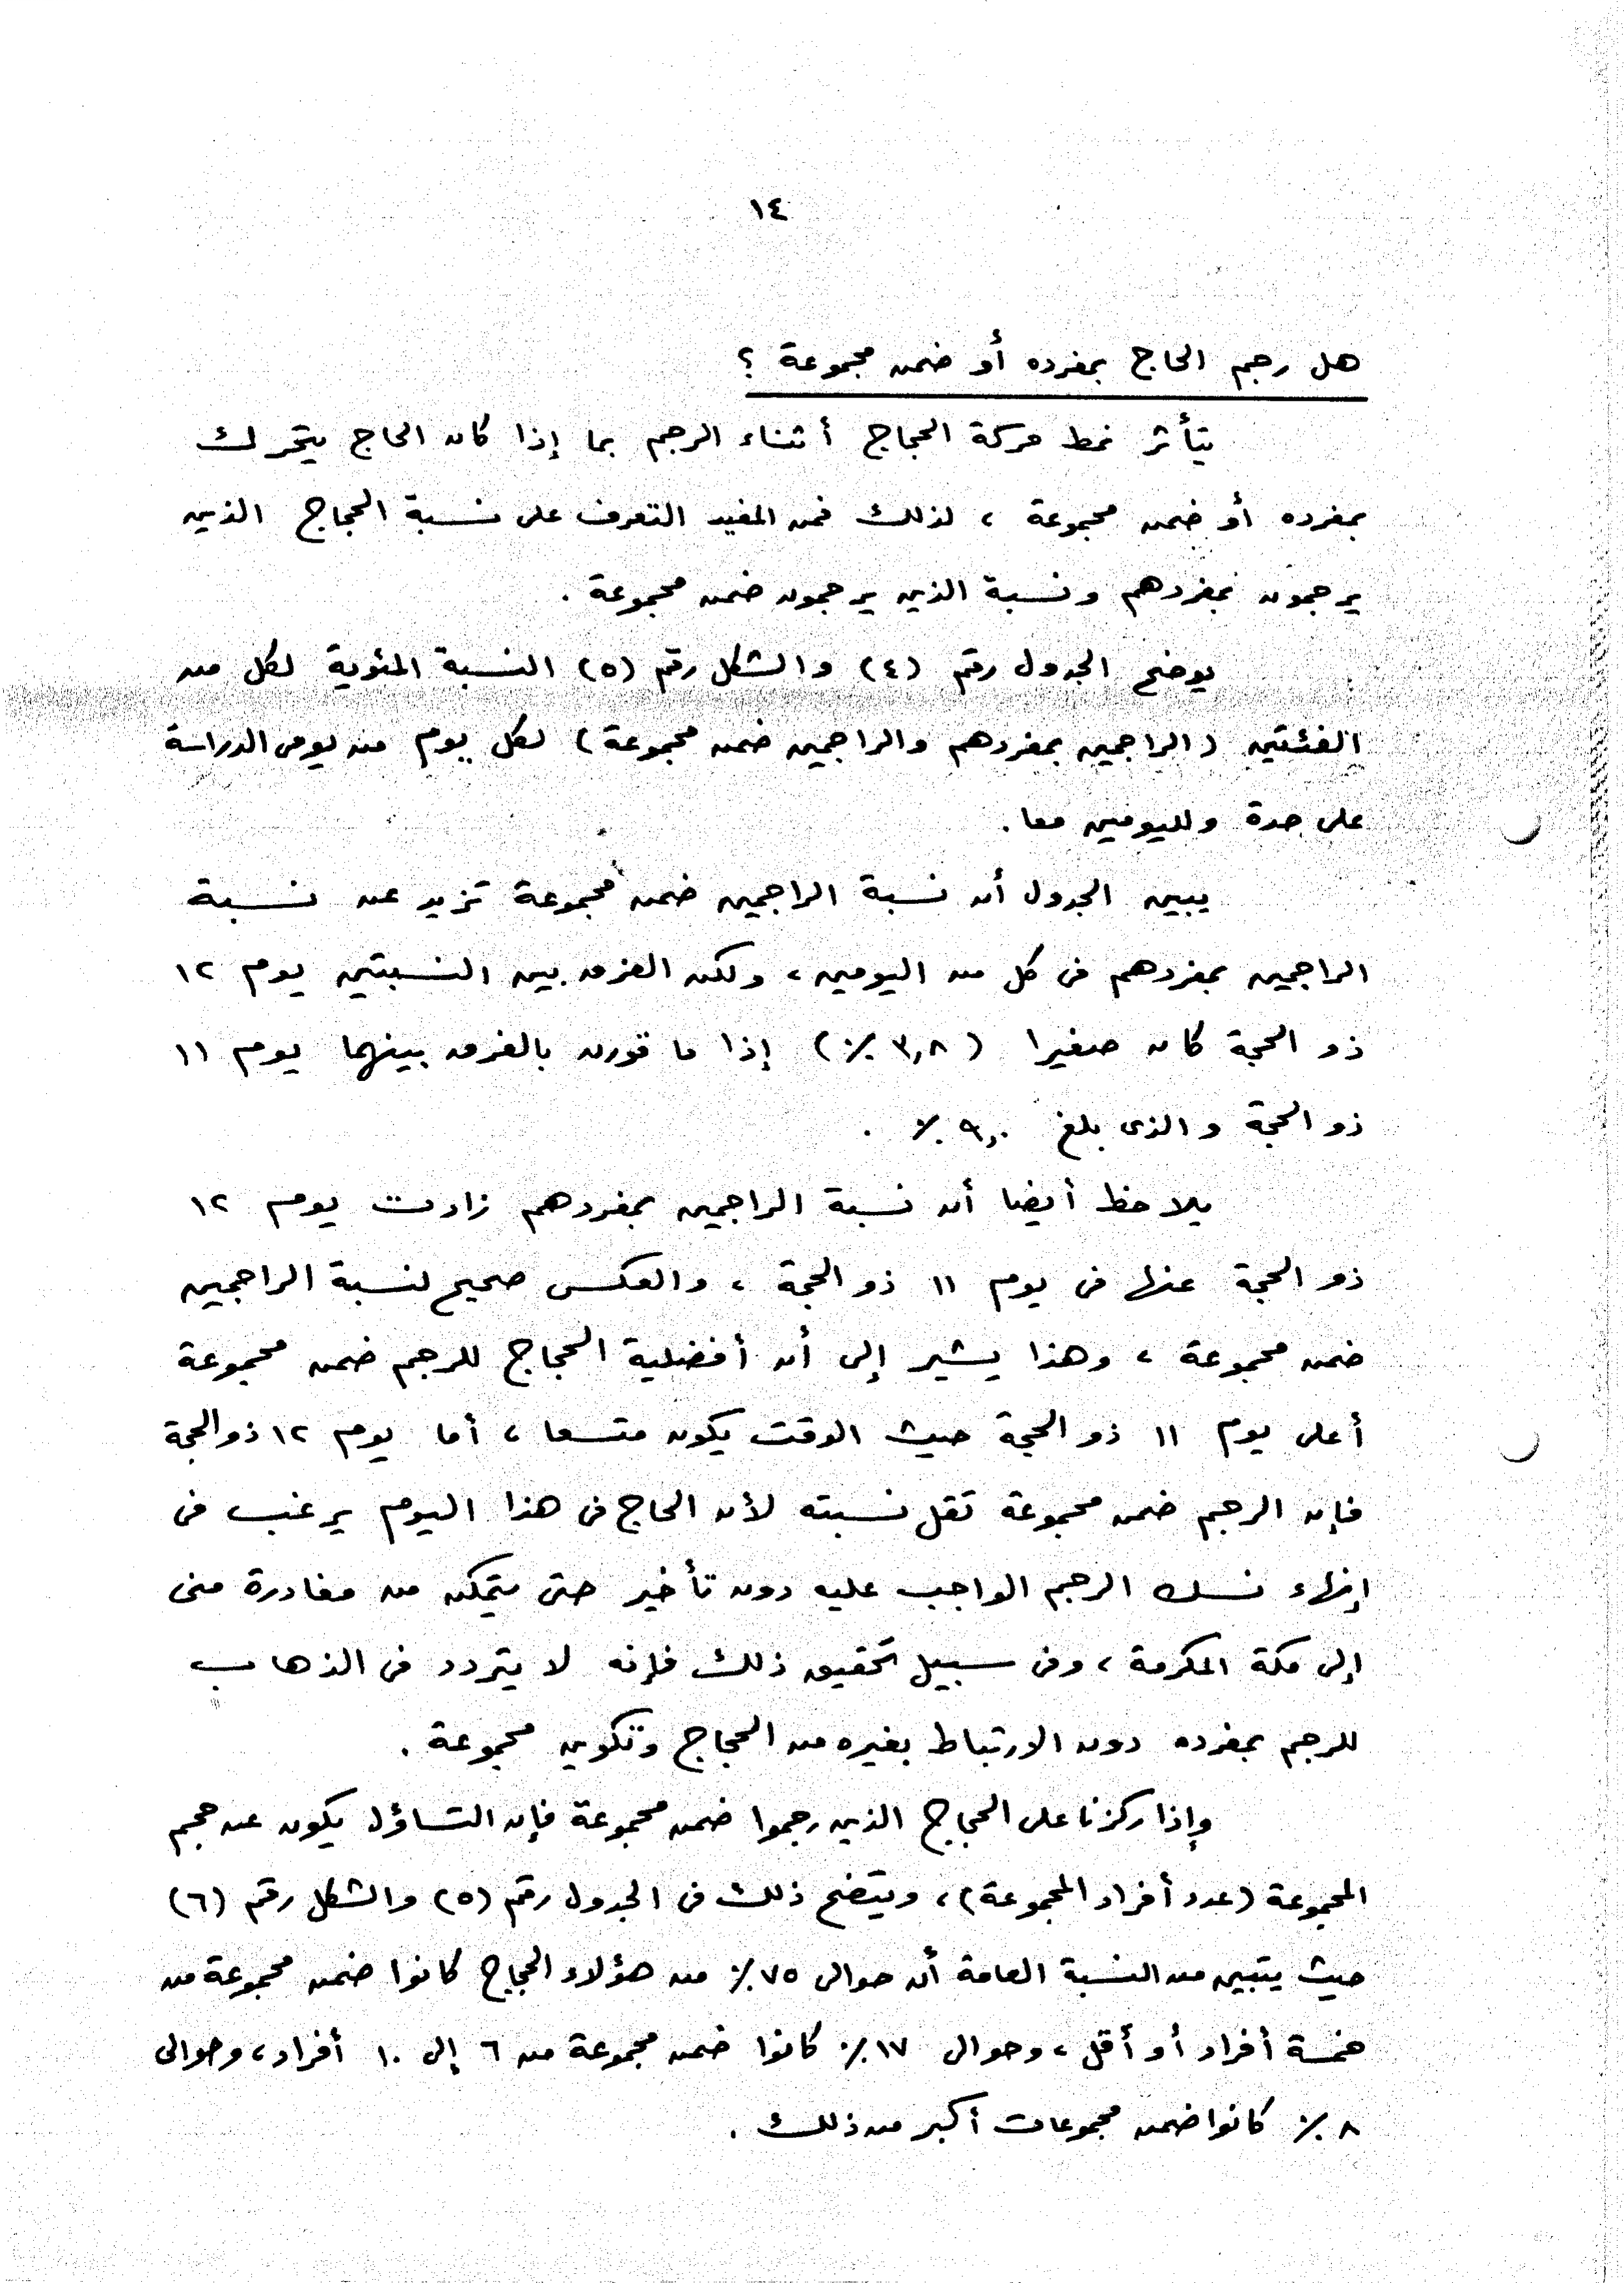 ١٤
هل رجم الحاج بمفرده أو ضمن مجموعة ؟
يتأثر نمط حركة الحجاج أثناء الرجم بما إذا كان الحاج يتحرك
بمفرده أو ضمن مجموعة ، لذلك فمن المفيد التعرف على نسبة الحجاج الذين
يرجمون بمفردهم ونسبة الذين يرجمون ضمن مجموعة .
يوضح الجدول رقم (٤) والشكل رقم (٥) النسبة المئوية لكل من
الفئتين (الراجمين بمفردهم والراجمين ضمن مجموعة) لكل يوم من يومى الدراسة
على حدة ولليومين معا .
يبين الجدول أن نسبة الراجمين ضمن مجموعة تزيد عن نسبة
الراجمين بمفردهم فى كل من اليومين ، ولكن الفرق بين النسبتين يوم ١٢
ذو الحجة كان صغيرا (٣,٨ ٪) إذا ما قورن بالفرق بينهما يوم ١١
ذو الحجة والذى بلغ ٩,٠ ٪ .
يلاحظ أيضا أن نسبة الراجمين بمفردهم زادت يوم ١٢
ذو الحجة عنها فى يوم ١١ ذو الحجة ، والعكس صحيح لنسبة الراجمين
ضمن مجموعة ، وهذا يشير إلى أن أفضلية الحجاج للرجم ضمن مجموعة
أعلى يوم ١١ ذو الحجة حيث الوقت يكون متسعا ، أما يوم ١٢ ذو الحجة
فإن الرجم ضمن مجموعة تقل نسبته لأن الحاج فى هذا اليوم يرغب فى
إنهاء نسك الرجم الواجب عليه دون تأخير حتى يتمكن من مغادرة منى
إلى مكة المكرمة ، وفى سبيل تحقيق ذلك فإنه لا يتردد فى الذهاب
للرجم بمفرده دون الارتباط بغيره من الحجاج وتكوين مجموعة .
وإذا ركزنا على الحجاج الذين رجموا ضمن مجموعة فإن التساؤل يكون عن حجم
المجموعة (عدد أفراد المجموعة) ، ويتضح ذلك فى الجدول رقم (٥) والشكل رقم (٦)
حيث يتبين من النسبة العامة أن حوالى ٧٥ ٪ من هؤلاء الحجاج كانوا ضمن مجموعة من
خمسة أفراد أو أقل ، وحوالى ١٧ ٪ كانوا ضمن مجموعة من ٦ إلى ١٠ أفراد ، وحوالى
٨ ٪ كانوا ضمن مجموعات أكبر من ذلك .